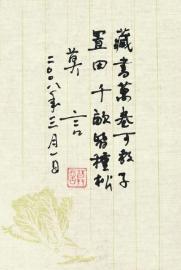 藏书万卷可教子
置田千亩皆种松
莫言
二〇〇八年三月一日